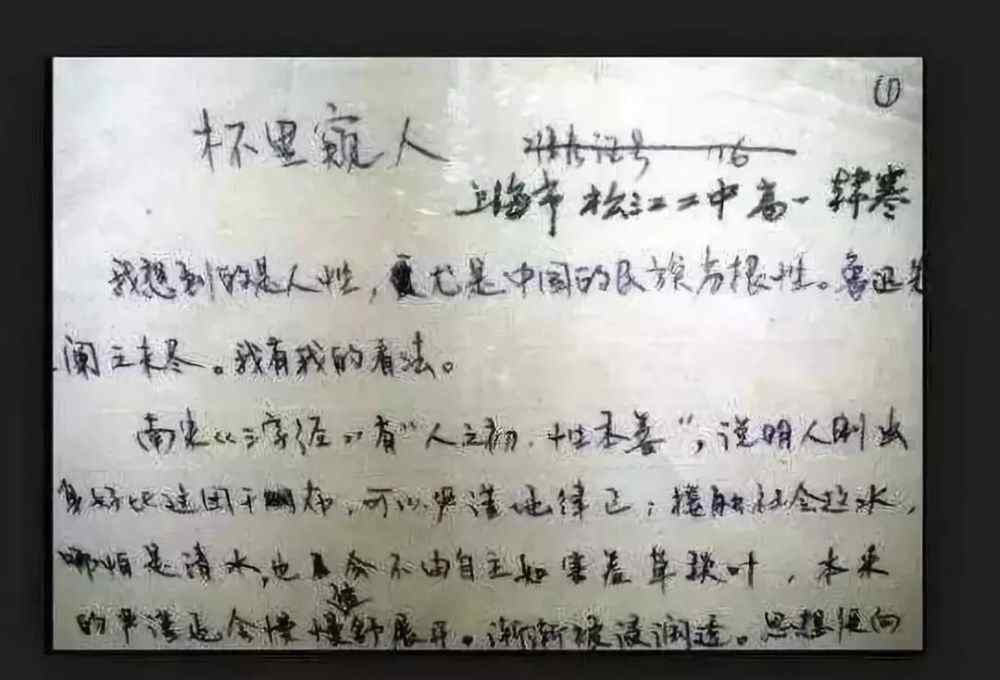 ①
杯里窥人
上海市 松江二中 高一 韩寒
我想到的是人性,尤是中国的民族劣根性。鲁迅先
阐之未尽。我有我的看法。
南宋《三字经》有"人之初,性本善",说明人刚出
身好比这团干布,可以严谨地律己;接触社会这水,
哪怕是清水,也会不由自主如害羞草叶,本来
的严谨也会慢慢舒展开。渐渐被浸润透。思想便向